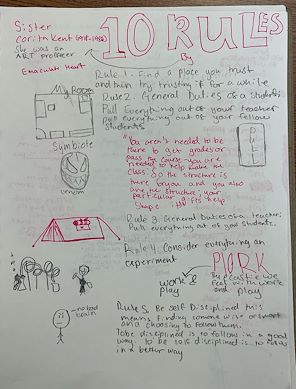 Sister
Corita Kent (1918-1986)
She was an
ART proffecer
Emaculit Heart
10 RULES
By
Rule 1. Find a place you trust
and then try trusting it for a while
My Room
Rule 2. General Duties of a student:
Pull Everything out of your teacher
pull everything out of your fellow
students
Symbiote
Venom
"You aren't needed to be
there to get grades or
pass the course you are
needed to help make the
class. So the structure is
there for you and you also
are the structure; your
particular
Shape
help.
Rule 3. General Duties of a teacher:
Pull everything out of your students.
Rule 4. Consider everything an
experiment
PlORK
work &
play
feel with work
and play
no bad
brain
Rule 5. Be self Disciplined this
means finding someone wise or smart
and choosing to follow them.
To be disciplined is to follow in a good
way. To be self disciplined is to follow
in a better way